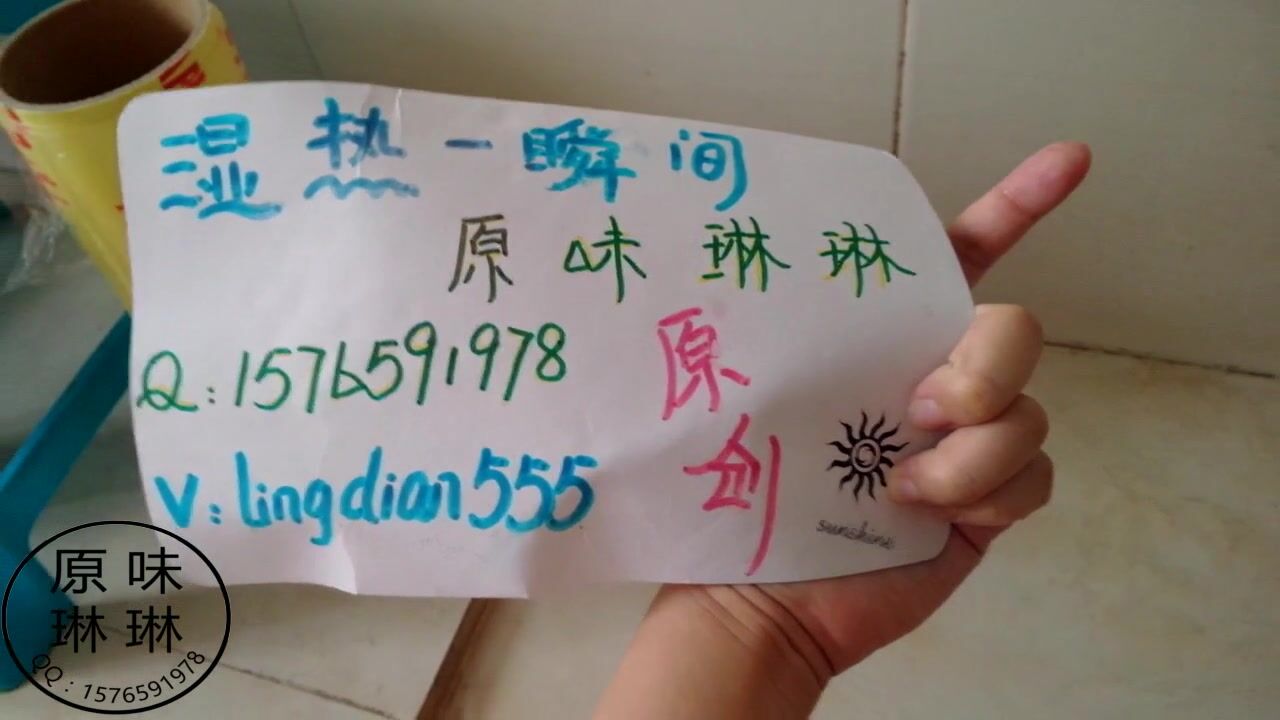 湿热一瞬间
原味琳琳
Q:1576591978
V:lingdian555
原
创
sunshine
原味
琳琳
QQ:1576591978